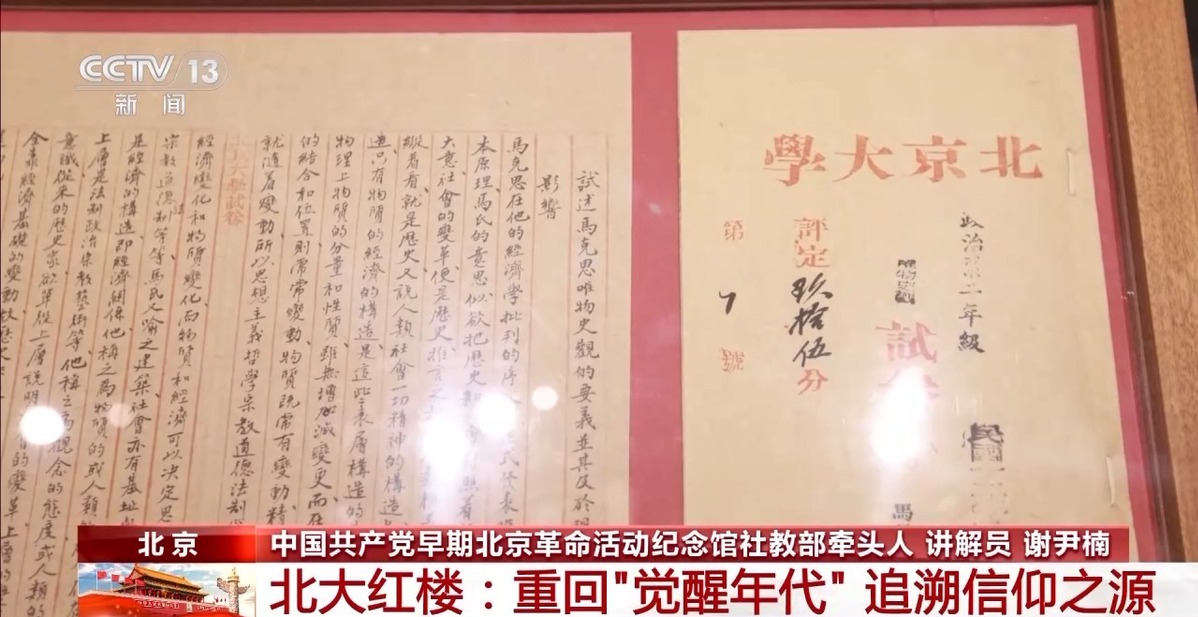 CCTV 13
新闻
北京大學
政治系二年級
試
民國
馬
評定玖拾伍分
第7號
試述馬克思唯物史觀的要義並其及於現
影響
馬克思在他的經濟學批判的序
本原理馬氏的意思似欲把歷史
大意社會的變革便是歷史推言之
縱着看就是歷史又說人類社會一切精神的構造
造只有物質的經濟的構造是這些表層構造的
物理上物質的分量和性質雖無增加減變更而在
的結合和位置則常常變動物質既常有變動精
就隨着變動所以思想主義哲學宗教道德法制
北京大學試卷
經濟變化和物質變化而物質和經濟可以決定思
宗教道德制等等馬氏又喻之建築社會亦有基址
是經濟的構造即經濟關係他稱之為物質的或人類
上層是法制政治宗教藝術等他稱之為觀念的態度或人類的
意識從來的歷史家欲單從上層說明 的變革上層的
全靠經濟基礎的變動故歷史
北京
中国共产党早期北京革命活动纪念馆社教部牵头人 讲解员 谢尹楠
北大红楼：重回"觉醒年代" 追溯信仰之源